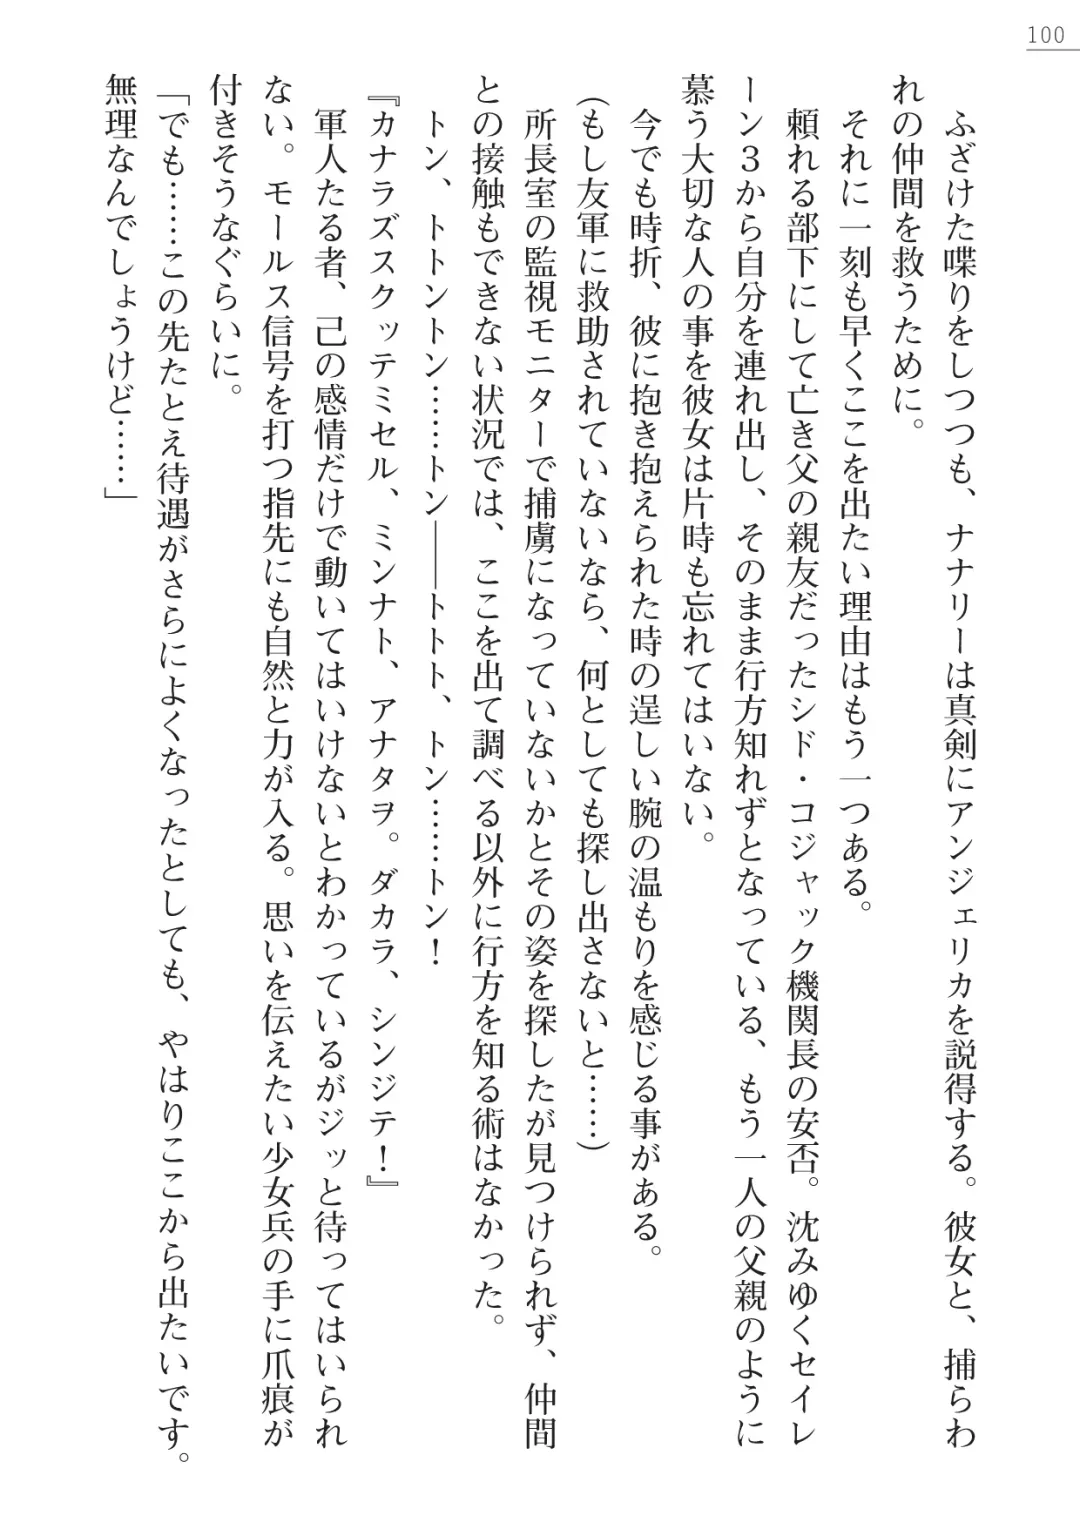 100
　ふざけた喋りをしつつも、ナナリーは真剣にアンジェリカを説得する。彼女と、捕らわ
れの仲間を救うために。
　それに一刻も早くここを出たい理由はもう一つある。
　頼れる部下にして亡き父の親友だったシド・コジャック機関長の安否。沈みゆくセイレ
ーン３から自分を連れ出し、そのまま行方知れずとなっている、もう一人の父親のように
慕う大切な人の事を彼女は片時も忘れてはいない。
　今でも時折、彼に抱き抱えられた時の逞しい腕の温もりを感じる事がある。
（もし友軍に救助されていないなら、何としても探し出さないと……）
　所長室の監視モニターで捕虜になっていないかとその姿を探したが見つけられず、仲間
との接触もできない状況では、ここを出て調べる以外に行方を知る術はなかった。
　トン、トトントン……トン――トトト、トン……トン！
『カナラズスクッテミセル、ミンナト、アナタヲ。ダカラ、シンジテ！』
　軍人たる者、己の感情だけで動いてはいけないとわかっているがジッと待ってはいられ
ない。モールス信号を打つ指先にも自然と力が入る。思いを伝えたい少女兵の手に爪痕が
付きそうなぐらいに。
「でも……この先たとえ待遇がさらによくなったとしても、やはりここから出たいです。
無理なんでしょうけど……」